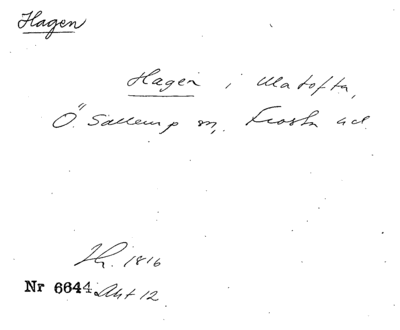 Hagen
Hagen i Ulatofta,
Ö. Sallerup sn, Frosta hd.
1816
Nr 6644 Akt 12